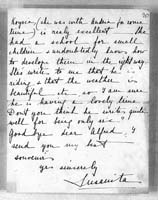 Royce (she was with Andrea for some
time) is really excellent. She
had a school for small
children & undoubtedly knows how
to develope them in the right way.
She writes to me that he is
riding & that the weather is
beautiful etc. so I am sure
he is having a lovely time.
Don't you think he writes quite
well for being only six?
Good bye dear Alfred, I
send you my best
souvenir
yrs sincerely